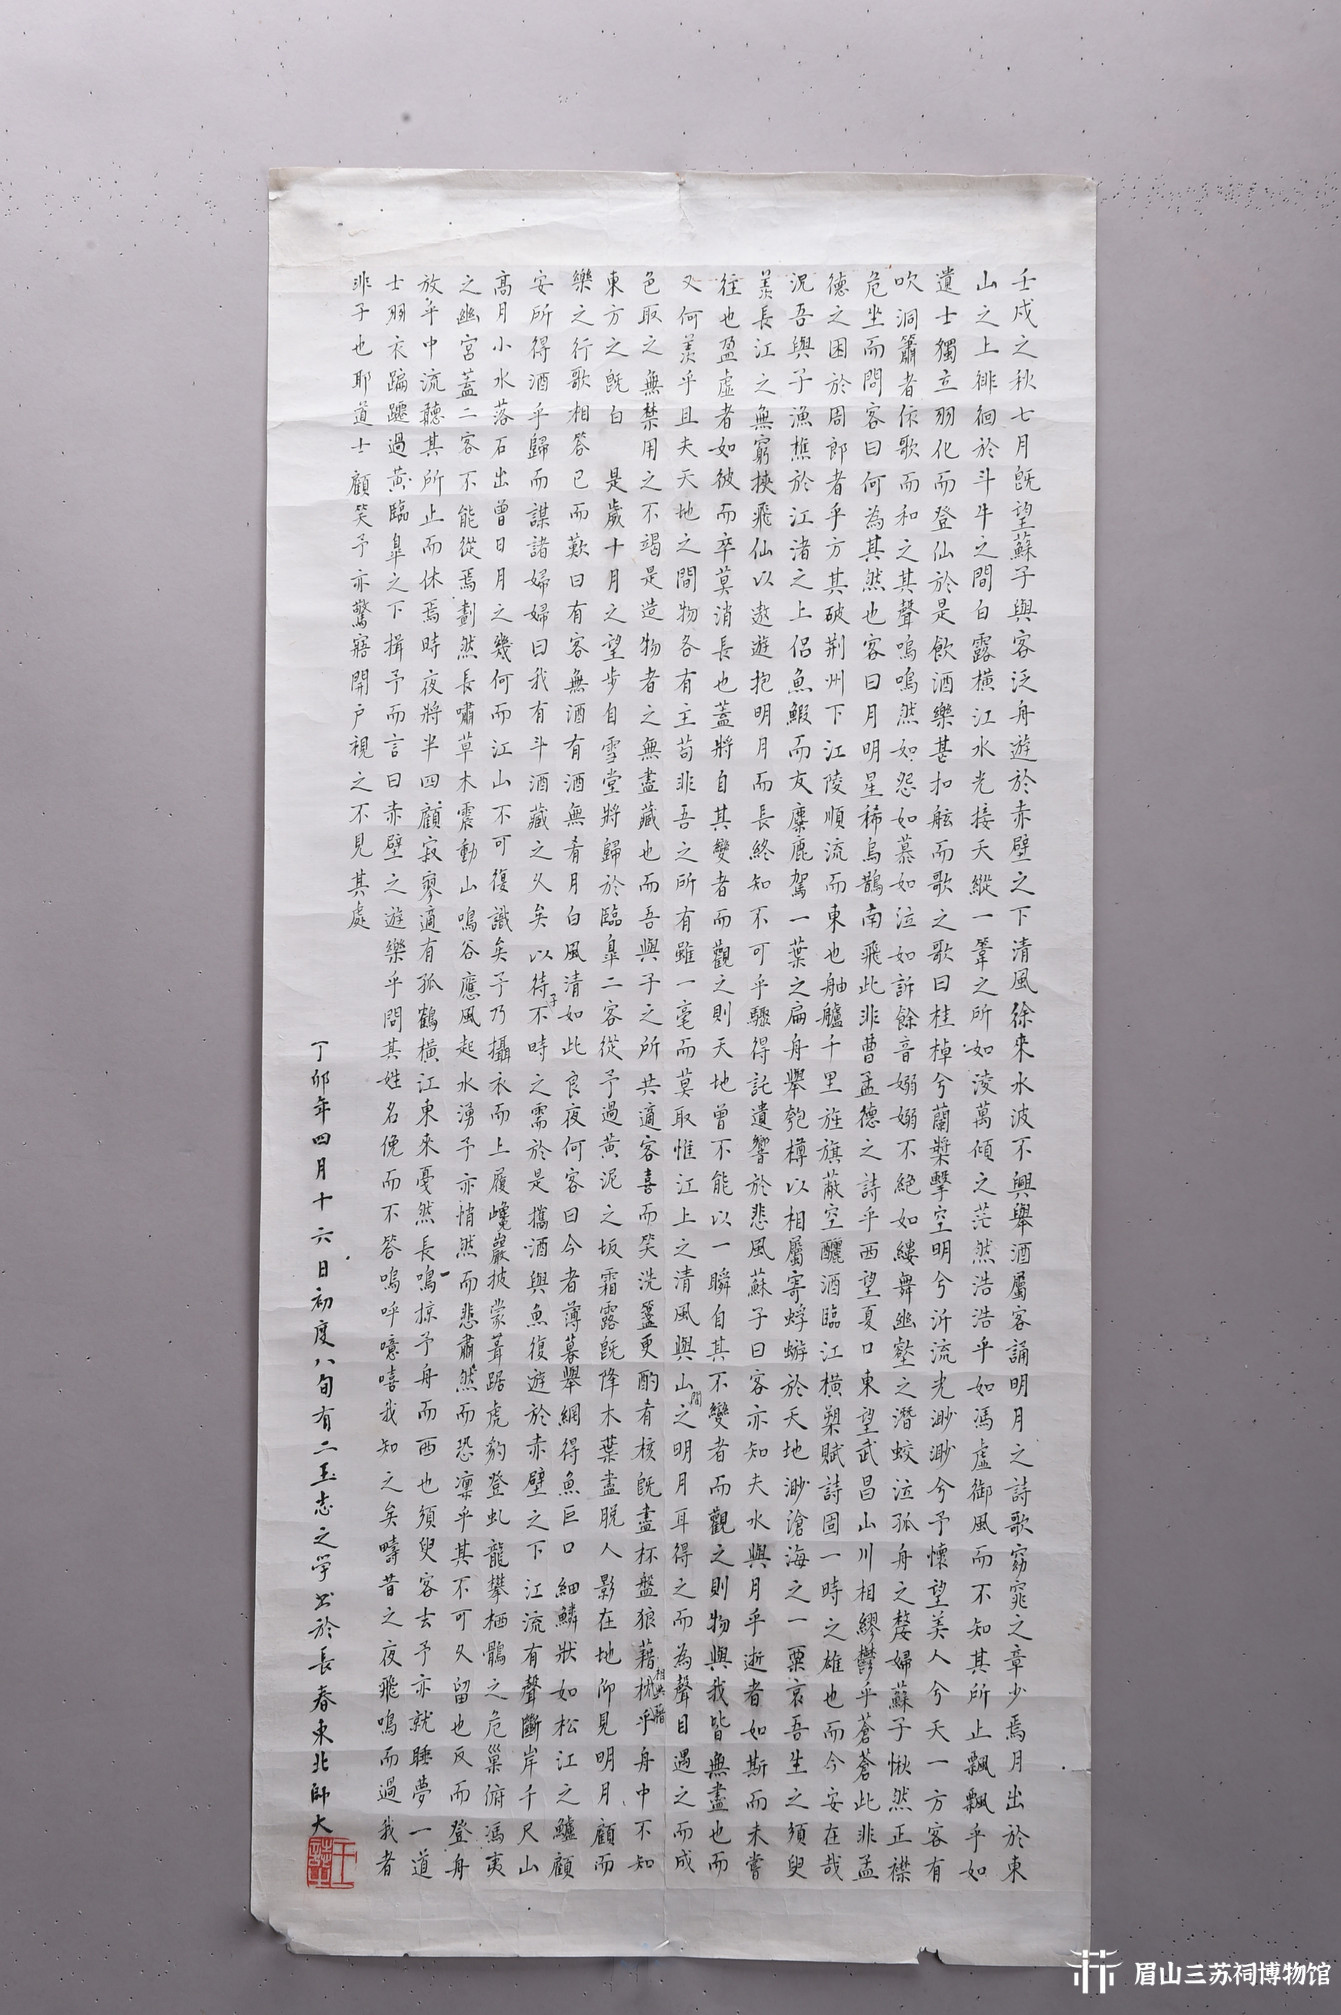 壬戌之秋七月既望蘇子與客泛舟遊於赤壁之下清風徐來水波不興舉酒屬客誦明月之詩歌窈窕之章少焉月出於東
山之上徘徊於斗牛之間白露橫江水光接天縱一葦之所如淩萬傾之茫然浩浩乎如馮虛御風而不知其所止飄飄乎如
遺士獨立羽化而登仙於是飲酒樂甚扣舷而歌之歌曰桂棹兮蘭槳擊空明兮泝流光渺渺兮予懷望美人兮天一方客有
吹洞簫者依歌而和之其聲嗚嗚然如怨如慕如泣如訴餘音嫋嫋不絕如縷舞幽壑之潛蛟泣孤舟之嫠婦蘇子愀然正襟
危坐而問客曰何為其然也客曰月明星稀烏鵲南飛此非曹孟德之詩乎西望夏口東望武昌山川相繆鬱乎蒼蒼此非孟
德之困於周郎者乎方其破荊州下江陵順流而東也舳艫千里旌旗蔽空釃酒臨江橫槊賦詩固一時之雄也而今安在哉
況吾與子漁樵於江渚之上侶魚鰕而友麋鹿駕一葉之扁舟舉匏樽以相屬寄蜉蝣於天地渺滄海之一粟哀吾生之須臾
羨長江之無窮挾飛仙以遨遊抱明月而長終知不可乎驟得託遺響於悲風蘇子曰客亦知夫水與月乎逝者如斯而未嘗
往也盈虛者如彼而卒莫消長也蓋將自其變者而觀之則天地曾不能以一瞬自其不變者而觀之則物與我皆無盡也而
又何羨乎且夫天地之間物各有主苟非吾之所有雖一毫而莫取惟江上之清風與山間之明月耳得之而為聲目遇之而成
色取之無禁用之不竭是造物者之無盡藏也而吾與子之所共適客喜而笑洗盞更酌肴核既盡杯盤狼藉相與枕藉乎舟中不知
東方之既白 是歲十月之望步自雪堂將歸於臨皋二客從予過黃泥之坂霜露既降木葉盡脫人影在地仰見明月顧而
樂之行歌相答已而歎曰有客無酒有酒無肴月白風清如此良夜何客曰今者薄暮舉網得魚巨口細鱗狀如松江之鱸顧
安所得酒乎歸而謀諸婦婦曰我有斗酒藏之久矣以待子不時之需於是攜酒與魚復遊於赤壁之下江流有聲斷岸千尺山
高月小水落石出曾日月之幾何而江山不可復識矣予乃攝衣而上履巉巖披蒙茸踞虎豹登虬龍攀栖鶻之危巢俯馮夷
之幽宮蓋二客不能從焉劃然長嘯草木震動山鳴谷應風起水湧予亦悄然而悲肅然而恐凜乎其不可久留也反而登舟
放乎中流聽其所止而休焉時夜將半四顧寂寥適有孤鶴橫江東來戛然長鳴掠予舟而西也須臾客去予亦就睡夢一道
士羽衣蹁躚過黃臨皋之下揖予而言曰赤壁之遊樂乎問其姓名俛而不答嗚呼噫嘻我知之矣疇昔之夜飛鳴而過我者
非子也耶道士顧笑予亦驚寤開戶視之不見其處
丁卯年四月十六日初度八旬有二王志之學书於長春東北師大
王志之
眉山三苏祠博物馆